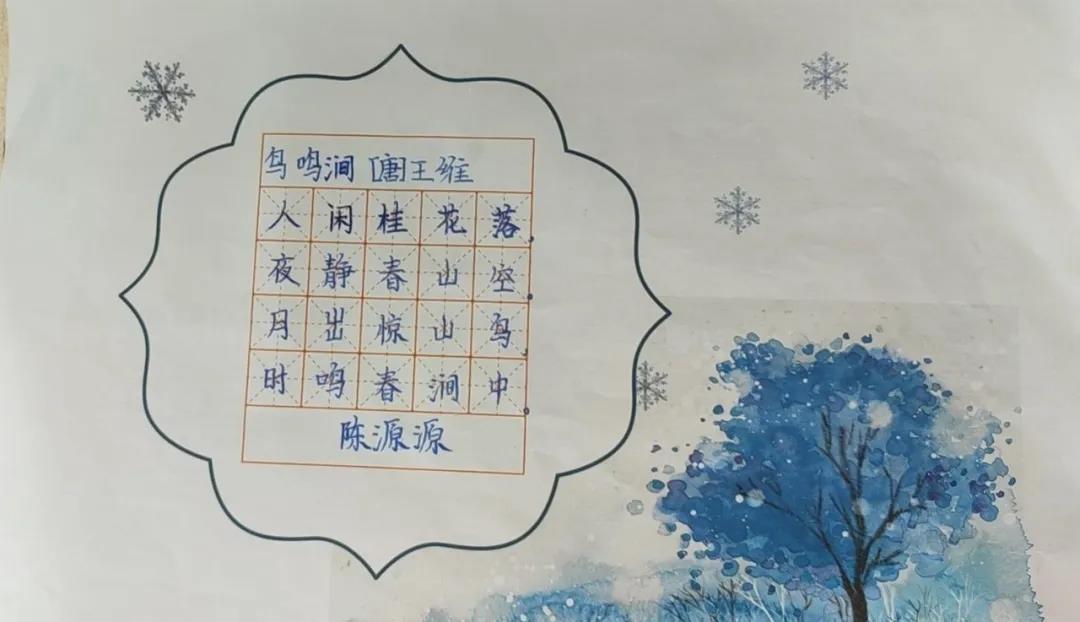 鸟鸣涧 [唐]王维
人闲桂花落，
夜静春山空。
月出惊山鸟，
时鸣春涧中。
陈源源